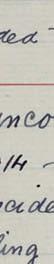 ded -
unco
14 -
cide
ling